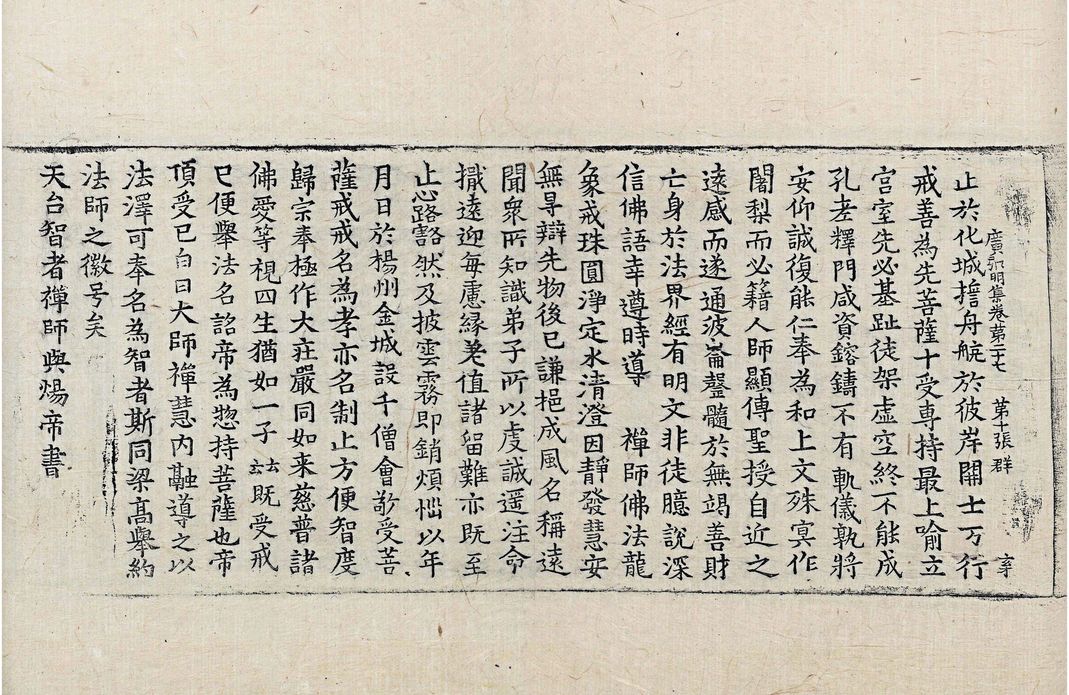 廣弘明集卷第二十七 第十張 群
止於化城擔舟航於彼岸開士万行
戒善為先菩薩十受専持最上喻立
宮室先必基趾徒架虛空終不能成
孔老釋門咸資鎔鑄不有軌儀孰將
安仰誠復能仁奉為和上文殊冥作
闍梨而必籍人師顯傳聖授自近之
遠感而遂通波崙罄髓於無竭善財
亡身於法界經有明文非徒臆說深
信佛語幸遵時導 禪師佛法龍
象戒珠圓淨定水清澄因靜發慧安
無㝵辯先物後已謙挹成風名稱遠
聞衆所知識弟子所以虔誠遥注命
檝遠迎每慮緣差值諸留難亦既至
止心路豁然及披雲霧即銷煩惱以年
月日於楊州金城設千僧會敬受菩
薩戒戒名為孝亦名制止方便智度
歸宗奉極作大庄嚴同如来慈普諸
佛愛等視四生猶如一子 云云 既受戒
已便舉法名詺帝為惣持菩薩也帝
頂受已白曰大師禪慧內融導之以
法澤可奉名為智者斯同梁高舉約
法師之徽号矣
天台智者禪師與煬帝書